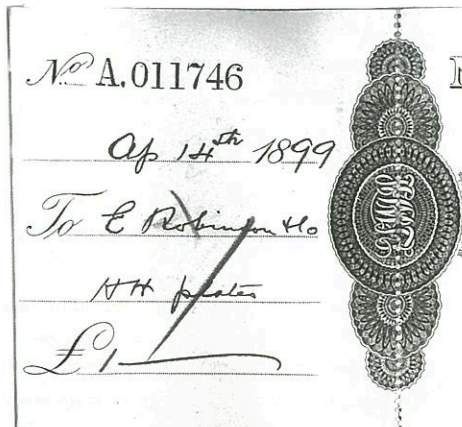 No A.011746
Ap 14th 1899
To E Robinson & Co
HH
£1